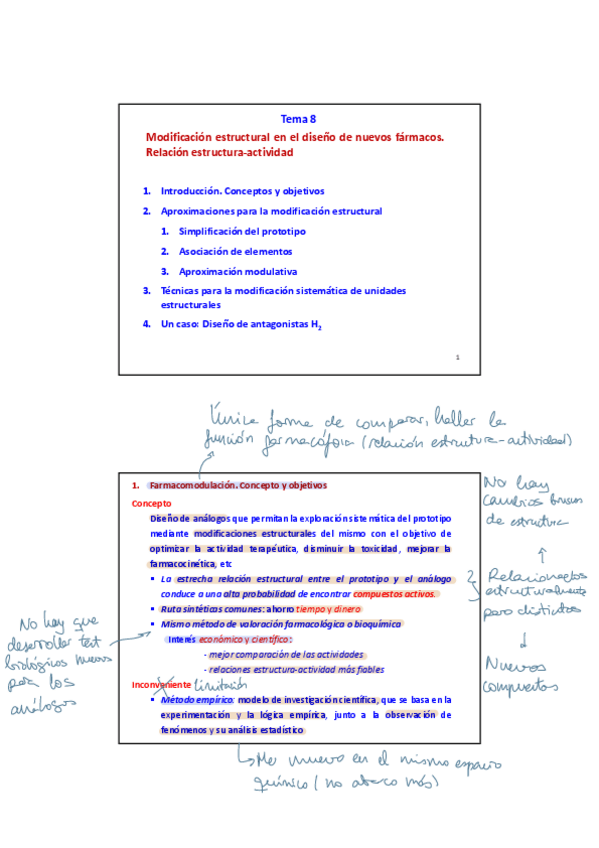 Tema 8
Modificación estructural en el diseño de nuevos fármacos.
Relación estructura-actividad
1. Introducción. Conceptos y objetivos
2. Aproximaciones para la modificación estructural
1. Simplificación del prototipo
2. Asociación de elementos
3. Aproximación modulativa
3. Técnicas para la modificación sistemática de unidades
estructurales
4. Un caso: Diseño de antagonistas H2
1
Única forma de comparar, haller la
función farmacófora (relación estructura-actividad)
1. Farmacomodulación. Concepto y objetivos
Concepto
Diseño de análogos que permitan la exploración sistemática del prototipo
mediante modificaciones estructurales del mismo con el objetivo de
optimizar la actividad terapéutica, disminuir la toxicidad, mejorar la
farmacocinética, etc
▪ La estrecha relación estructural entre el prototipo y el análogo
conduce a una alta probabilidad de encontrar compuestos activos.
▪ Ruta sintéticas comunes: ahorro tiempo y dinero
▪ Mismo método de valoración farmacológica o bioquímica
Interés económico y científico:
- mejor comparación de las actividades
- relaciones estructura-actividad más fiables
Inconveniente limitación
▪ Método empírico: modelo de investigación científica, que se basa en la
experimentación y la lógica empírica, junto a la observación de
fenómenos y su análisis estadístico
No hay
cambios
de estructura
Relacionados
estructuralmente
pero distintos
Nuevos
compuestos
No hay que
desarrollar test
biológicos nuevos
para los
análogos
Me muevo en el mismo espacio
químico (no abarco más)